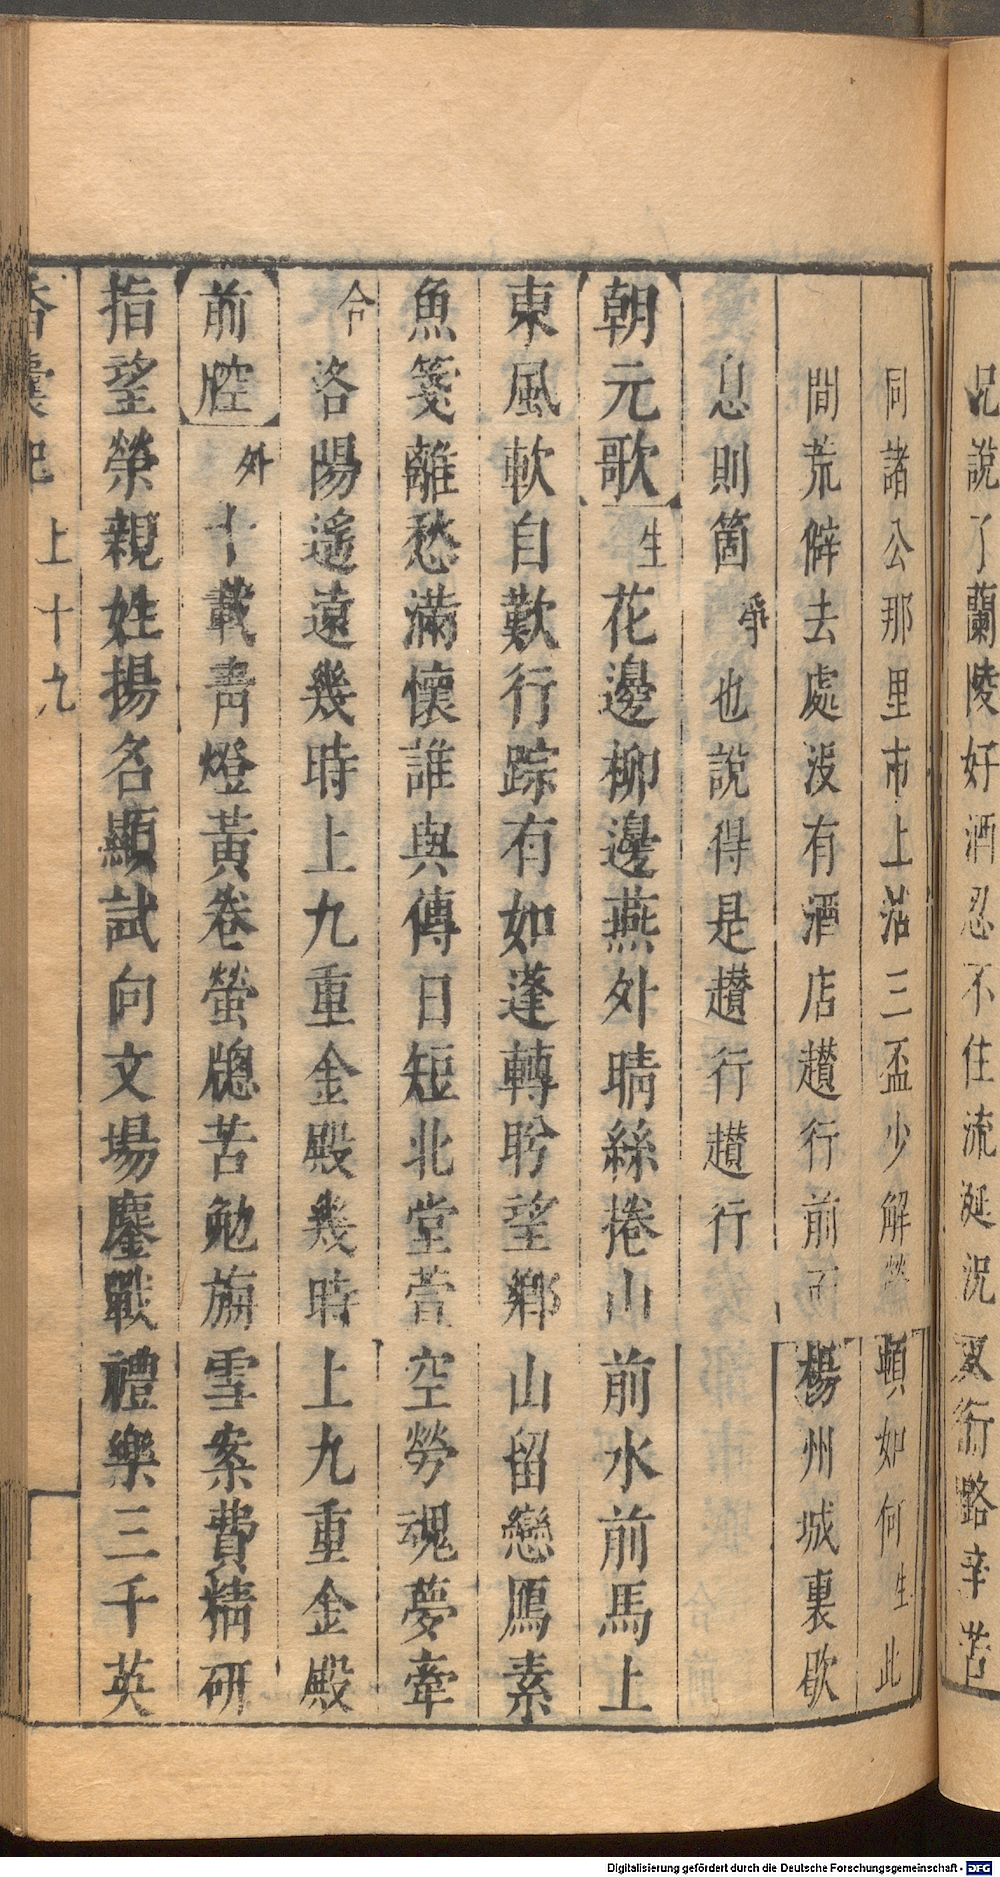 況說了蘭陵好酒忍不住流涎況又行路辛苦
同諸公那里市上沽三盃少解勞頓如何生此
間荒僻去處沒有酒店趲行前面楊州城裏歇
息則箇爭也說得是趲行趲行
朝元歌生花邊柳邊燕外晴絲捲山前水前馬上
東風軟自歎行踪有如蓬轉盻望鄉山留戀鴈素
魚箋離愁滿懷誰與傳日短北堂萱空勞魂夢牽
合洛陽遙遠幾時上九重金殿幾時上九重金殿
前腔外十載靑燈黃卷螢牕苦勉旃雪案費精研
指望榮親姓揚名顯試向文場鏖戰禮樂三千英
香囊記 上 十九
Digitalisierung gefördert durch die Deutsche Forschungsgemeinschaft - DFG